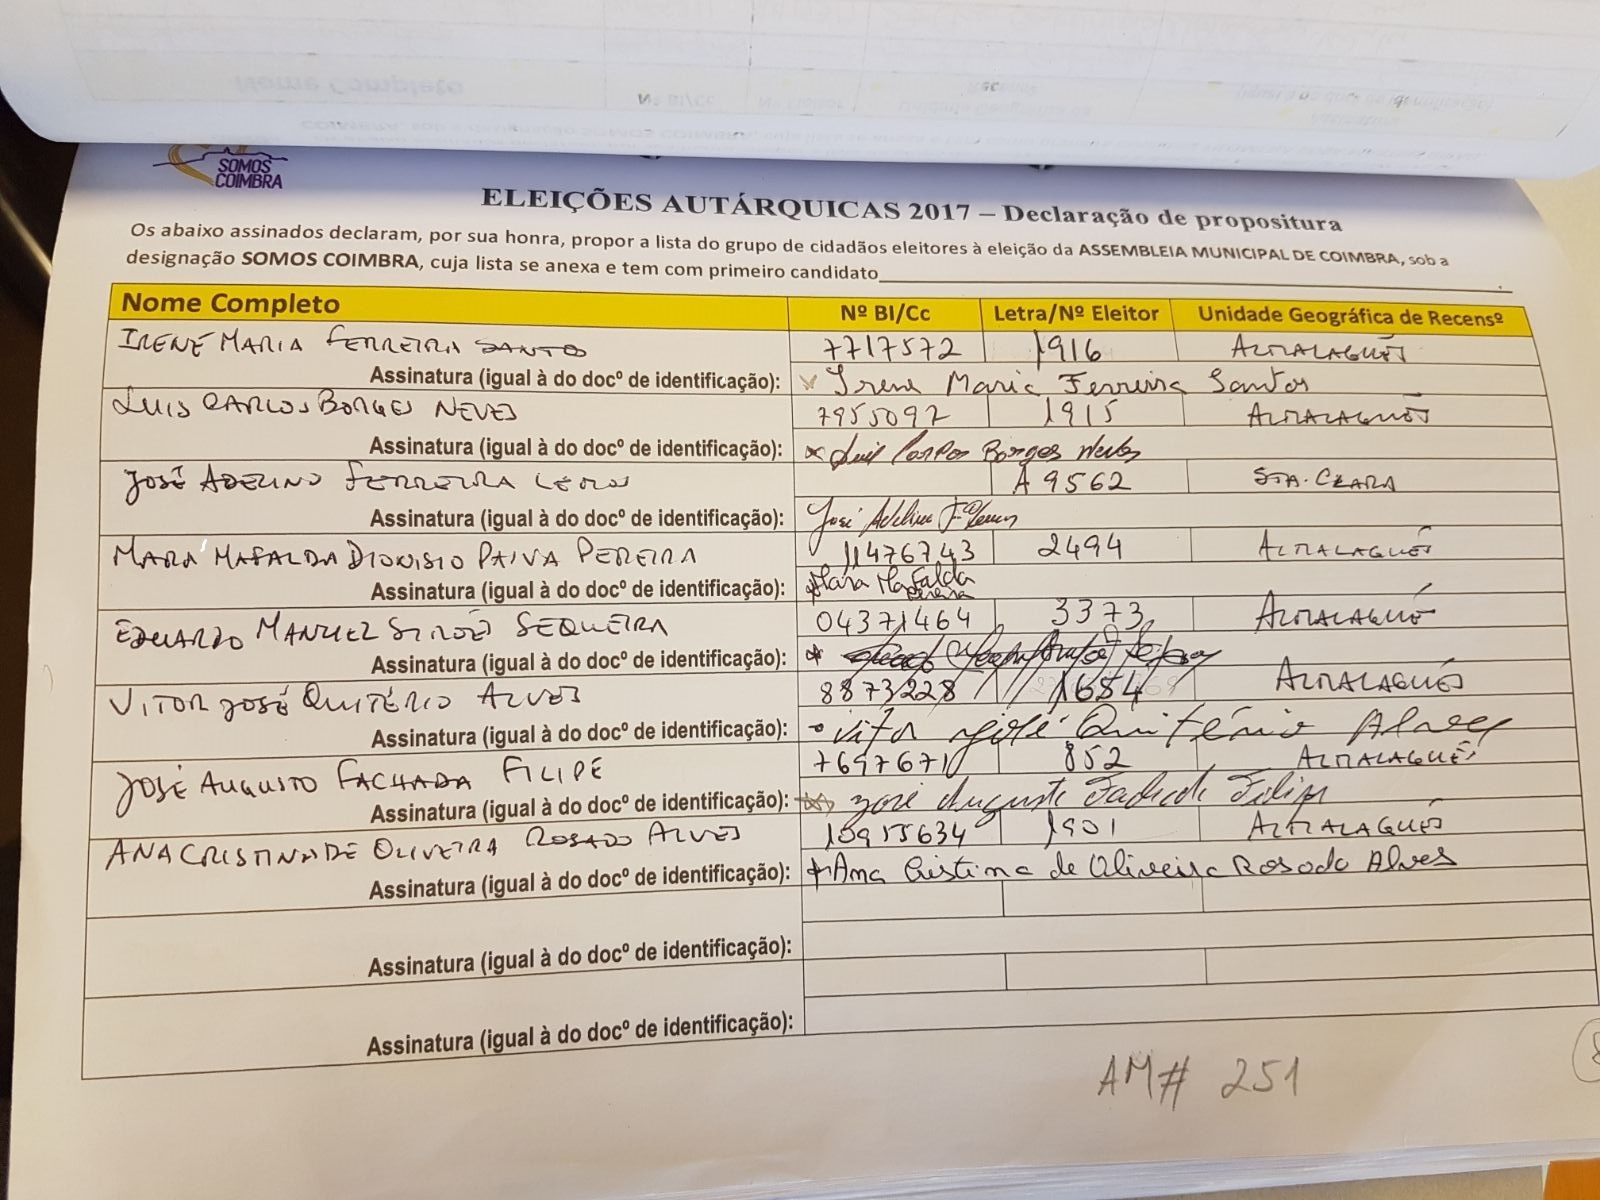 SOMOS
COIMBRA
ELEIÇÕES AUTÁRQUICAS 2017 – Declaração de propositura
Os abaixo assinados declaram, por sua honra, propor a lista do grupo de cidadãos eleitores à eleição da ASSEMBLEIA MUNICIPAL DE COIMBRA, sob a
designação SOMOS COIMBRA, cuja lista se anexa e tem com primeiro candidato
Nome Completo Nº BI/Cc Letra/Nº Eleitor Unidade Geográfica de Recensº
IRENE MARIA FERREIRA SANTOS 7717572 1916 ALMALAGUÊS
Assinatura (igual à do docº de identificação): Irene Maria Ferreira Santos
LUIS CARLOS BORGES NEVES 7955092 1915 ALMALAGUÊS
Assinatura (igual à do docº de identificação): Luis Carlos Borges Neves
JOSÉ ADELINO FERREIRA LEMOS A 9562 STA. CLARA
Assinatura (igual à do docº de identificação): José Adelino Fª Lemos
MARA MAFALDA DIONISIO PAIVA PEREIRA 11476743 2494 ALMALAGUÊS
Assinatura (igual à do docº de identificação): Mara Mafalda
Pereira
EDUARDO MANUEL SIMÕES SEQUEIRA 04371464 3373 ALMALAGUÊS
Assinatura (igual à do docº de identificação):
VITOR JOSÉ QUITÉRIO ALVES 8873228 1654 ALMALAGUÊS
Assinatura (igual à do docº de identificação): Vitor José Quitério Alves
JOSÉ AUGUSTO FACHADA FILIPE 7697671 852 ALMALAGUÊS
Assinatura (igual à do docº de identificação): José Augusto Fachada Filipe
ANA CRISTINA DE OLIVEIRA ROSADO ALVES 10955634 1901 ALMALAGUÊS
Assinatura (igual à do docº de identificação): Ana Cristina de Oliveira Rosado Alves
Assinatura (igual à do docº de identificação):
Assinatura (igual à do docº de identificação):
AM# 251